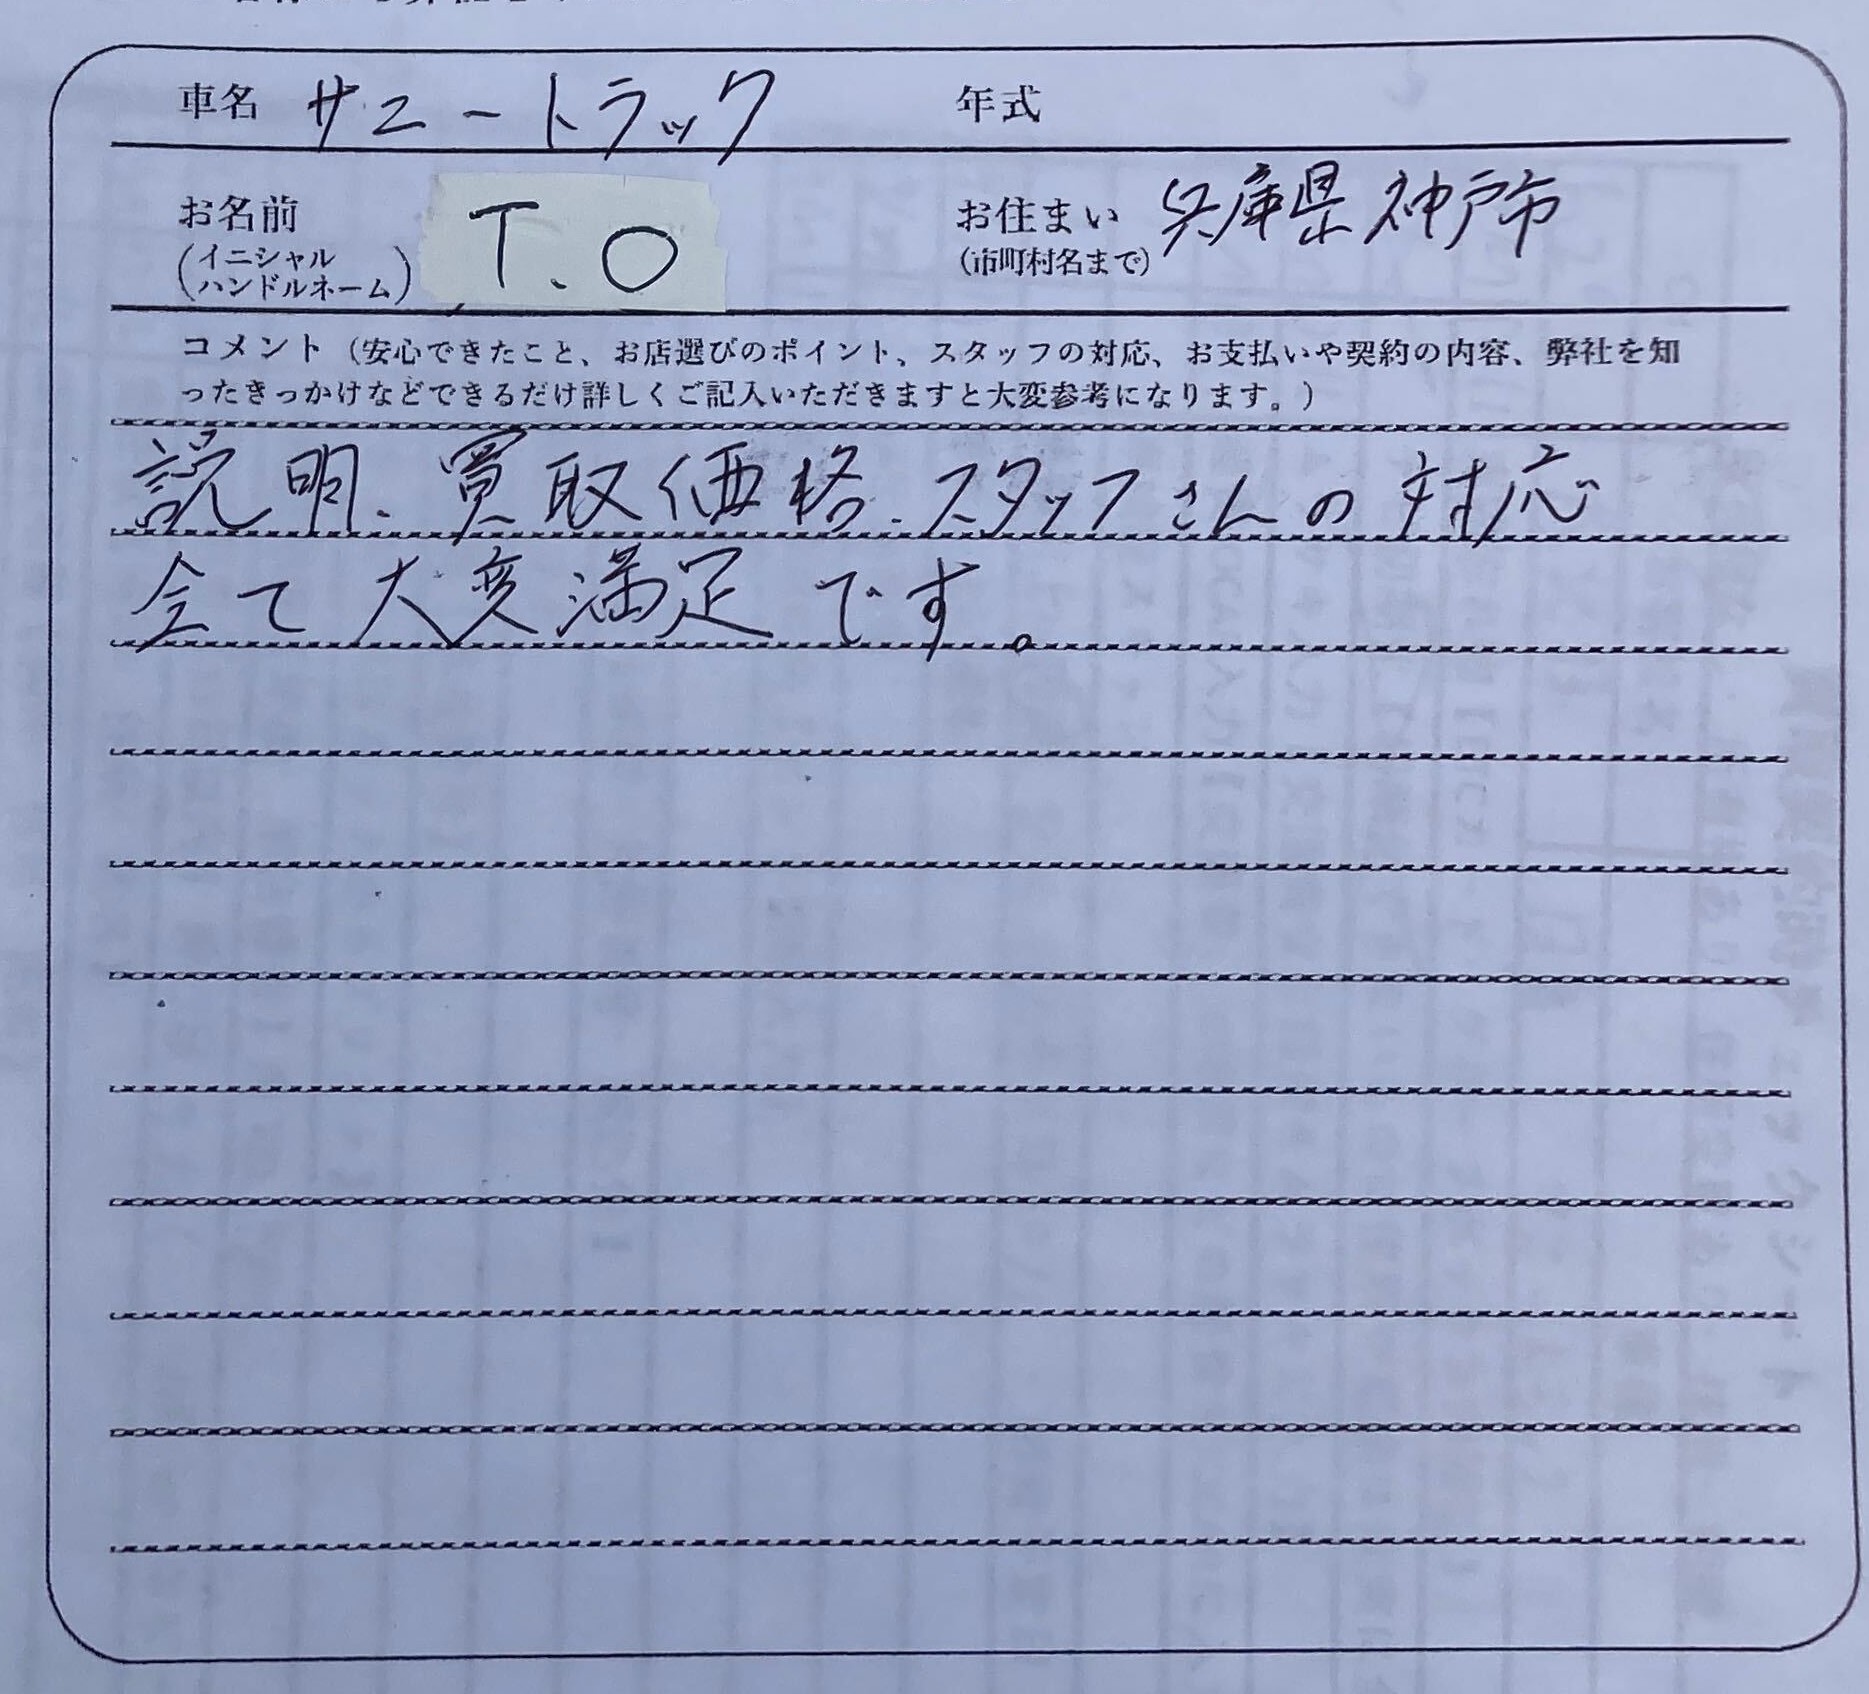 車名 サニートラック 年式
お名前 T.O お住まい 兵庫県神戸市
(イニシャル
ハンドルネーム) (市町村名まで)
コメント(安心できたこと、お店選びのポイント、スタッフの対応、お支払いや契約の内容、弊社を知
ったきっかけなどできるだけ詳しくご記入いただきますと大変参考になります。)
説明、買取価格、スタッフさんの対応
全て大変満足です。